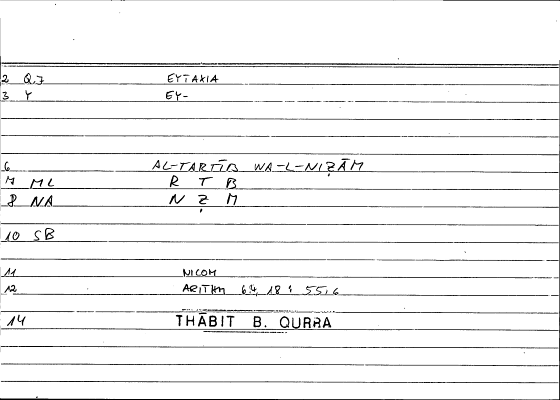 2 Q.J EYTAXIA
3 Y EY-
6 AL-TARTĪB WA-L-NIẒĀM
7 ML R T B
8 NA N Ẓ M
10 SB
11 NICOM
12 ARITHM 64, 18 : 55,6
14 THĀBIT B. QURRA